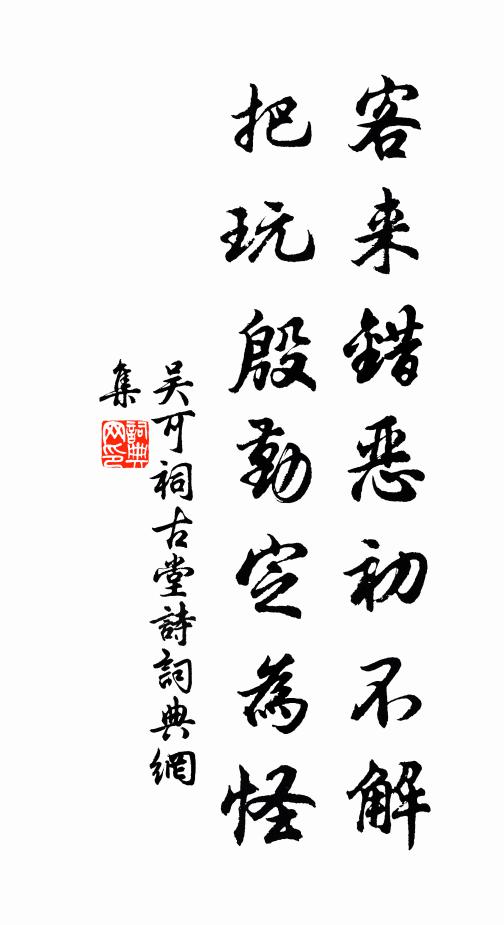 客来錯恶初不解
把玩殷勤定為怪
吴可祠古堂詩詞典網
集
詞典网印